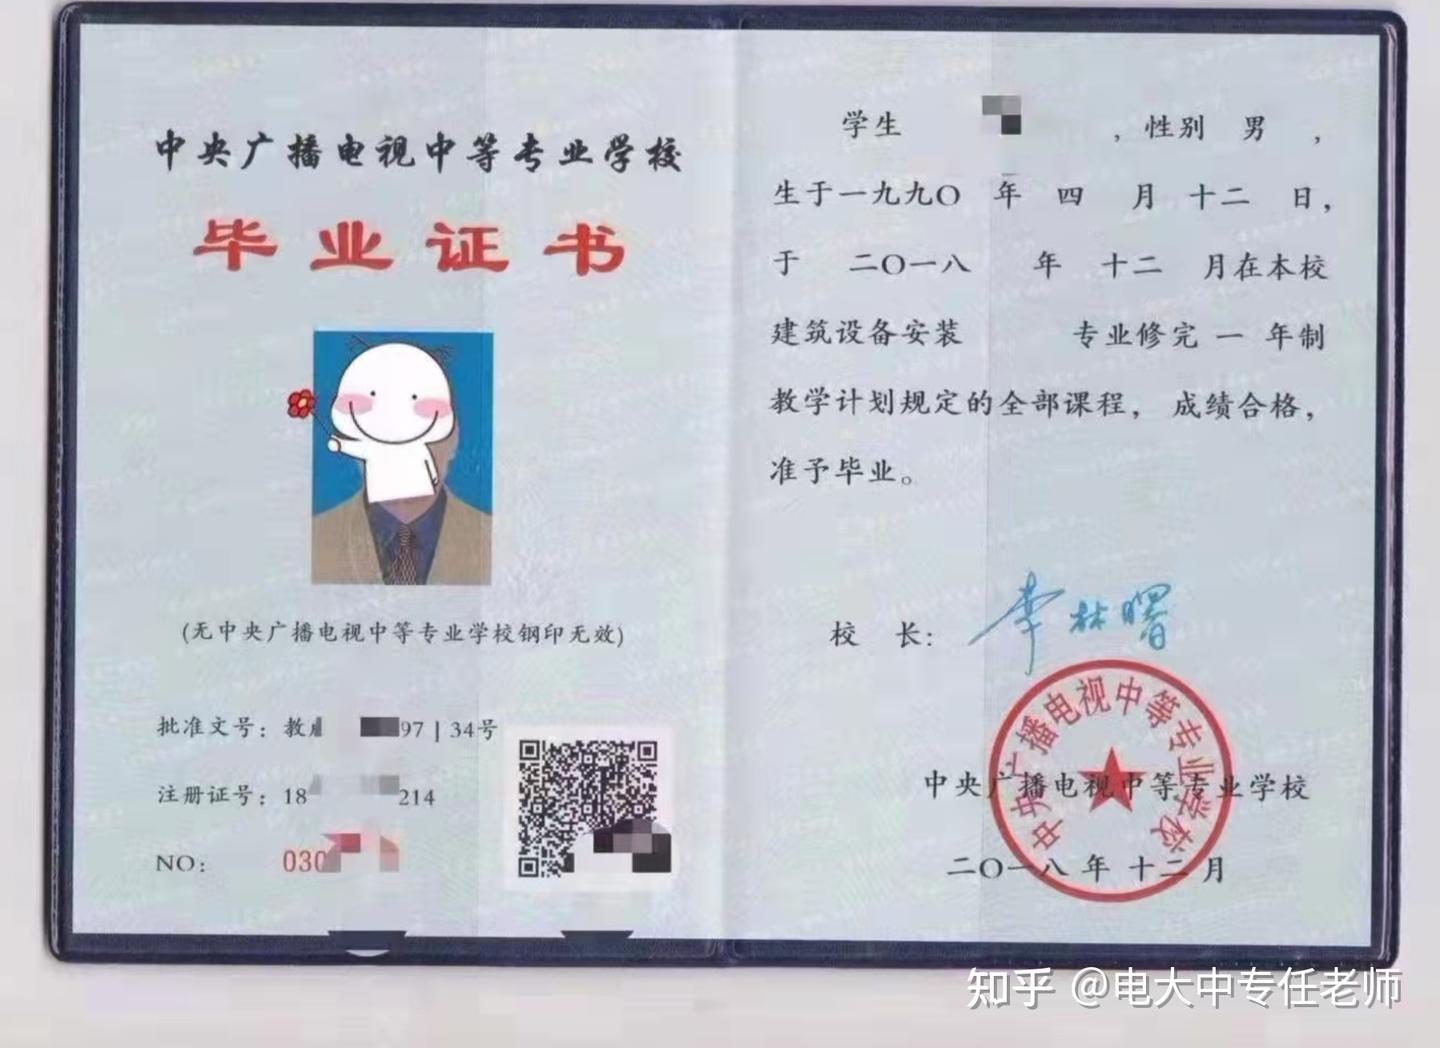 中央广播电视中等专业学校
毕业证书
(无中央广播电视中等专业学校钢印无效)
批准文号：教 97 | 34号
注册证号：18 214
NO： 030
学生 ，性别 男 ，
生于一九九〇 年 四 月 十二 日，
于 二〇一八 年 十二 月在本校
建筑设备安装 专业修完 一 年制
教学计划规定的全部课程， 成绩合格，
准予毕业。
校 长： 李林曙
中央广播电视中等专业学校
中央广播电视中等专业学校
二〇一八 年 十二 月
知乎 @电大中专任老师